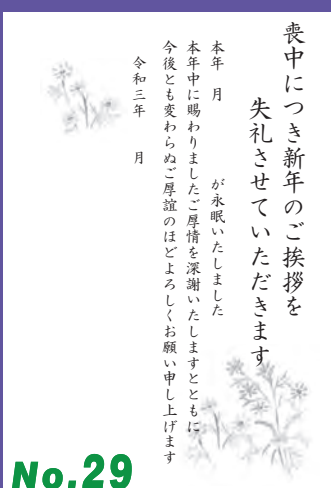 喪中につき新年のご挨拶を
失礼させていただきます
本年　月　　　　が永眠いたしました
本年中に賜わりましたご厚情を深謝いたしますとともに
今後とも変わらぬご厚誼のほどよろしくお願い申し上げます
令和三年　　月
No.29